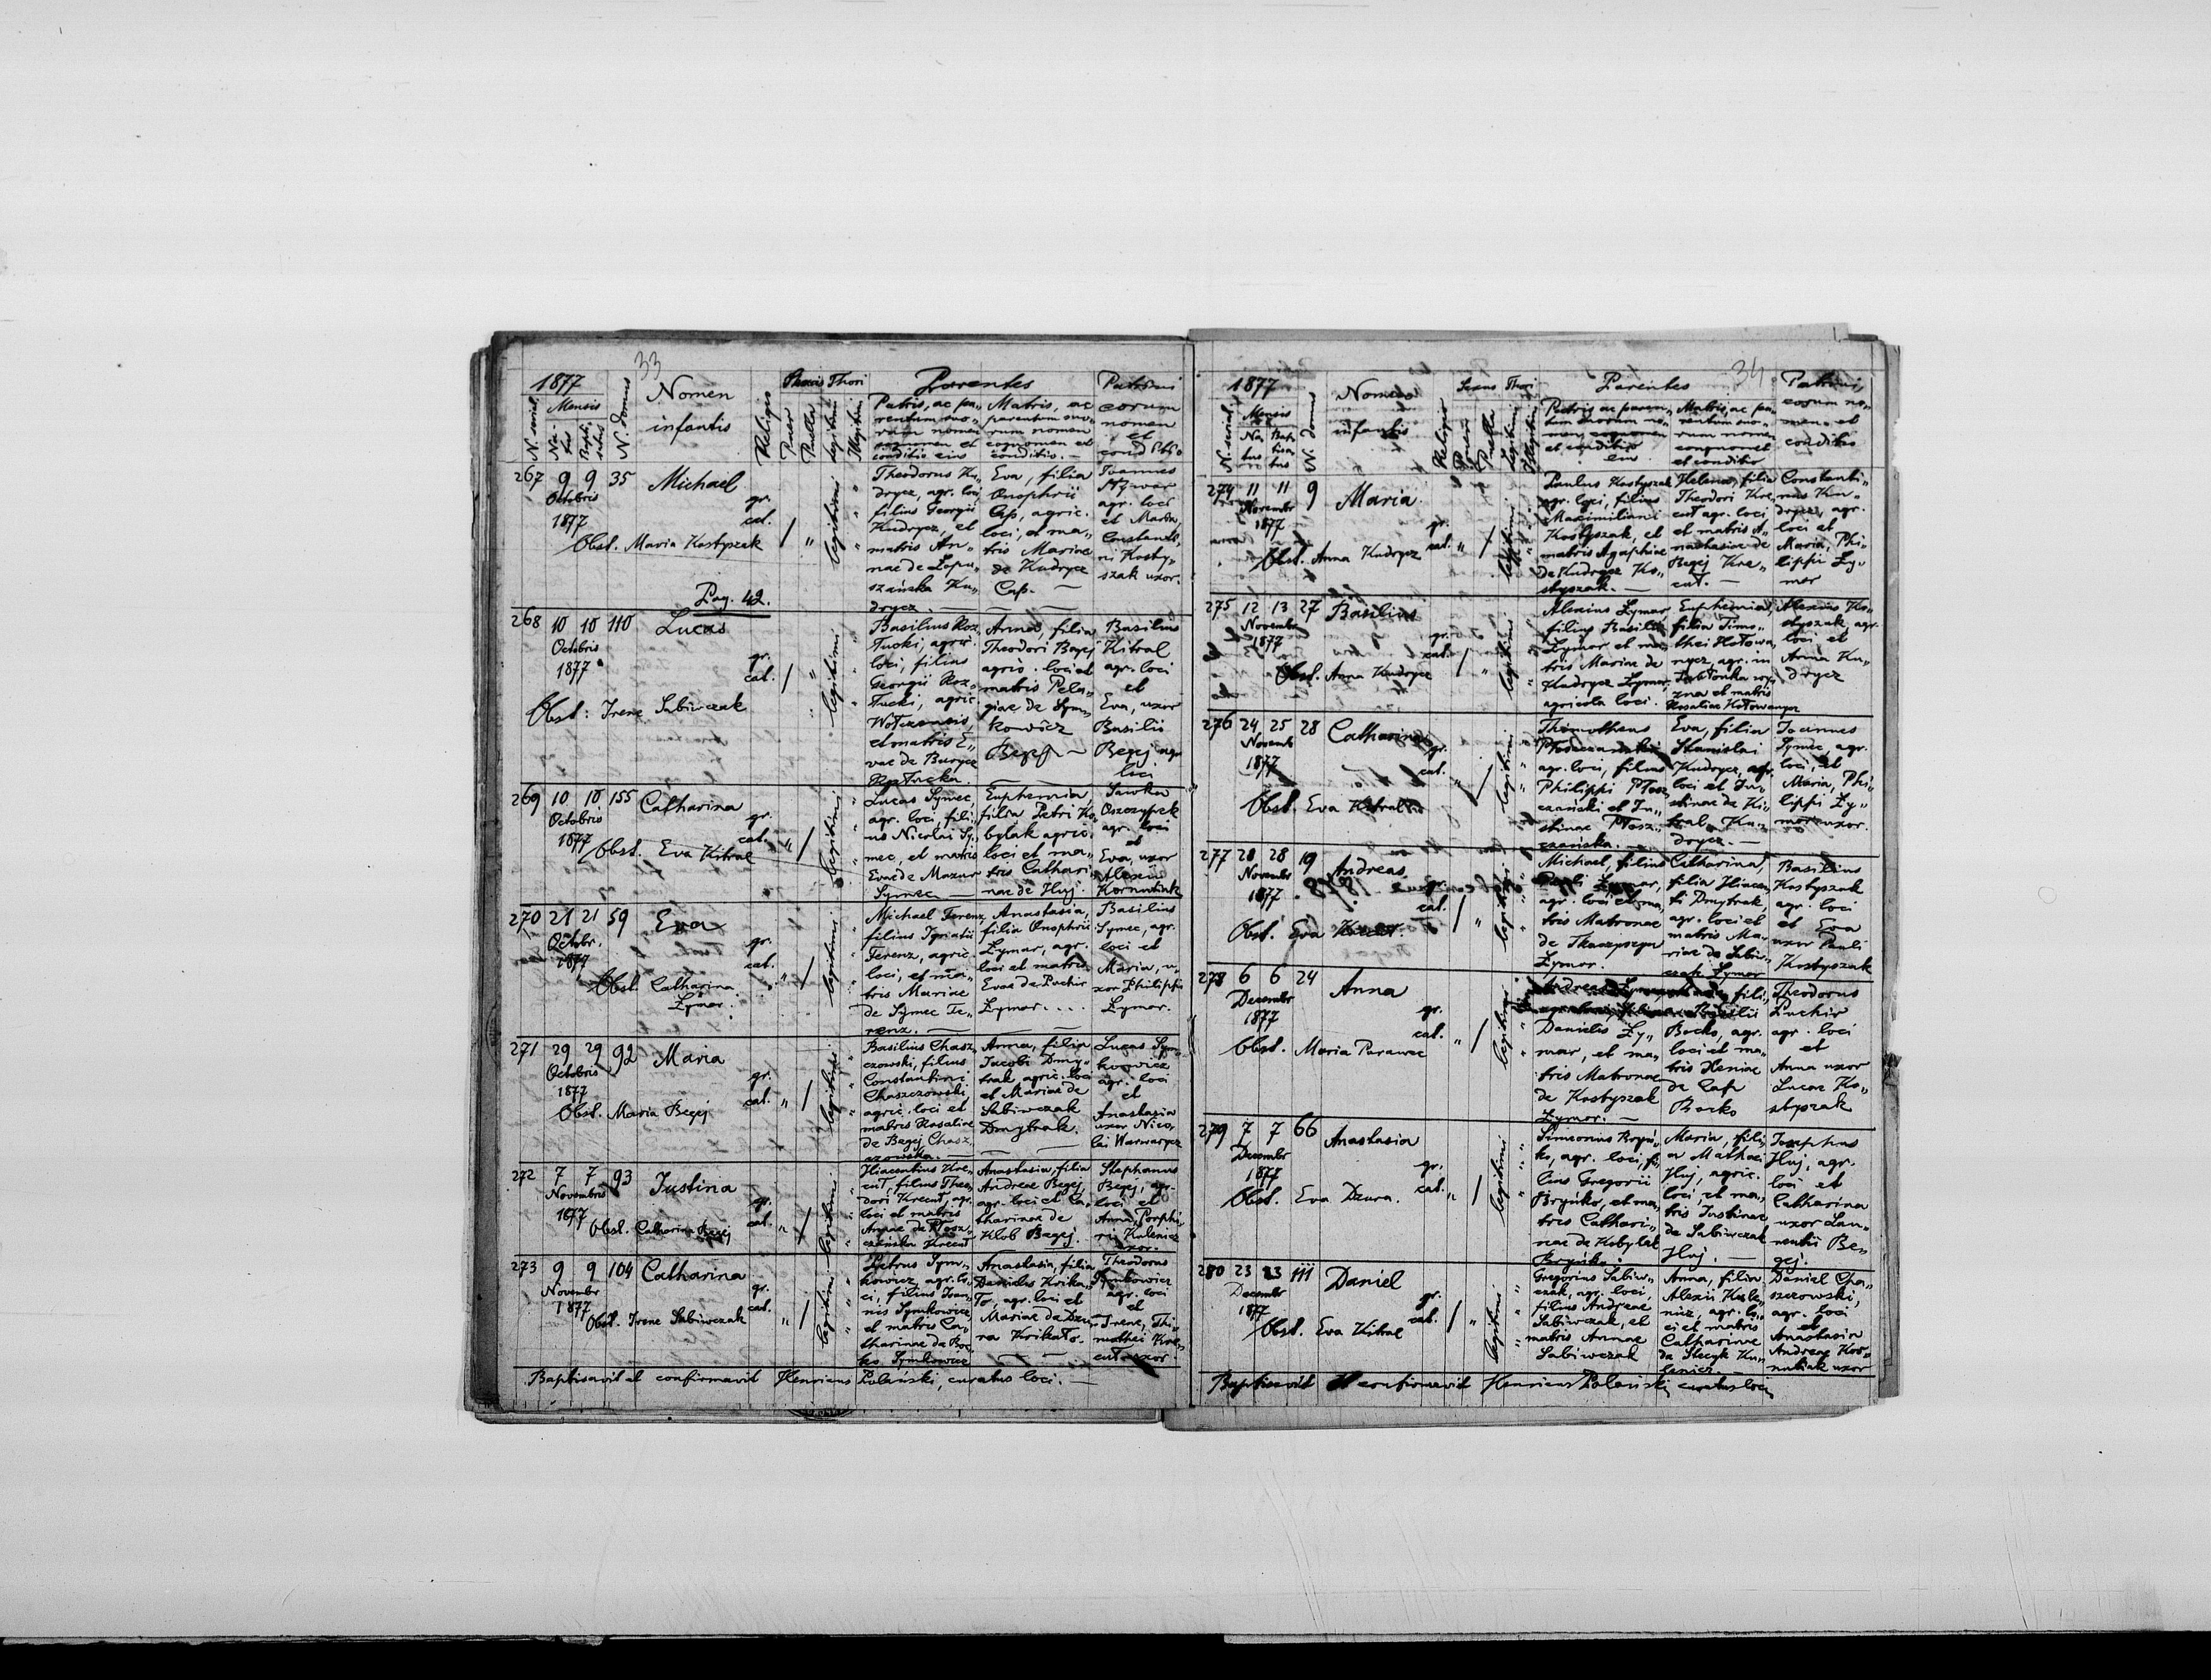 33
1877
Mensis
N. serial.
Na-
tus
Bapti-
satus
N. domus
Nomen
infantis
Religio
Puer
Puella
Thori
legitimi
Illegitimi
Parentes
Patris, ac pa„
rentum suo„
rum nomen
cognomen et
conditio eius
Matris, ac
parentum suo„
rum nomen
cognomen et
conditio. —
Patrini
eorum
nomen
et
conditio
267 9 9 35 Michael
Octobris
1877
gr.
cat.
Obst. Maria Kostyszak
legitimi
Theodorus Ku„
drycz, agr. loci
filius Georgii
Kudrycz, et
matris An„
nae de Łopu„
szańska Ku„
drycz. —
Eva, filia
Onophrii
Cap, agric.
loci, et ma„
tris Mariae
de Kudrycz
Cap. —
Joannes
agr. loci
et Maria,
Constanti„
ni Kosty„
szak uxor.
Pag. 42.
268 10 10 110 Lucas
Octobris
1877
gr.
cat.
Obst: Irene Sabiwczak
legitimi
Basilius Roz„
łucki, agric.
loci, filius
Georgii Roz„
łucki, agric.
et matris E„
vae de Burycz
Rozłucka.
Anna, filia
Theodori Begej
agric. loci et
matris Pela„
giae de Sym„
kowicz
Begej —
Basilius
Kitral
agr. loci
et
Eva, uxor
Basilii
Begej agr.
loci
269 10 10 155 Catharina
Octobris
1877
gr.
cat.
Obst. Eva Kitral
legitimi
Lucas Symec,
agr. loci, fili„
us Nicolai Sy„
mec, et matris
Evae de Mazur
Symec —
Euphemia
filia Petri Ko„
bylak agric.
loci et ma„
tris Cathari„
nae de Huj.
Sawka
Oszczypek
agr. loci
et
Eva, uxor
Alexii
Kornutiak
270 21 21 59 Eva
Octobr.
1877
gr.
cat.
Obst. Catharina
Łymar.
legitimi
Michael Ferenz,
filius Ignatii
Ferenz, agric.
loci, et ma„
tris Mariae
de Symec Fe„
renz. —
Anastasia,
filia Onophrii
Łymar, agr.
loci et matris
Evae de Puchir
Łymar. . . .
Basilius
Symec, agr.
loci et
Maria, u„
xor Philippi
Łymar.
271 29 29 92 Maria
Octobris
1877
gr.
cat.
Obst. Maria Begej
legitimi
Basilius Chasz„
czowski, filius
Constantini
Chaszczowski,
agric. loci et
matris Rosaliae
de Begej Chasz„
czowska. —
Anna, filia
Jacobi Dmy„
trak, agric. loci
et Mariae de
Sabiwczak
Dmytrak.
Lucas Sym„
kowicz
agr. loci
et
Anastasia
uxor Nico„
lai Warwarycz
272 7 7 93 Justina
Novembris
1877
gr.
cat.
Obst. Catharina Begej
legitimi
Hiacentius Kre„
cut, filius Theo„
dori Krecut, agr.
loci et matris
Annae de Płosz„
czańska Krecut
Anastasia, filia
Andreae Begej,
agr. loci et Ca„
tharinae de
Kłob Begej.
Stephanus
Begej, agr.
loci et
Anna, Porphi„
rii Kulenicz
uxor.
273 9 9 104 Catharina
Novembr
1877
gr.
cat.
Obst. Irene Sabiwczak
legitimi
Petrus Sym„
kowicz, agr. lo„
ci, filius Ioan„
nis Symkowicz
et matris Ca„
tharinae de Boc„
ko Symkowicz
Anastasia, filia
Danielis Krika„
ło, agr. loci et
Mariae de Dzu„
ra Krikało. —
Theodorus
Symkowicz
agr. loci
et
Irene, Thi„
mothei Kre„
cut uxor
Baptisavit et confirmavit Henricus Polański, curatus loci. —
34.
1877
Mensis
N. serial.
Na-
tus
Bapti-
satus
N. domus
Nomen
infantis
Religio
Puer
Puella
Sexus Thori
Legitimi
Illegitimi
Parentes
Patris ac paren„
tum suorum no„
men, cognomen
et conditio
eius
Matris, ac pa„
rentum suo„
rum nomen
cognomen
et conditio
Patrini
eorum no„
men et
conditio
274 11 11 9 Maria
Novembr
1877
gr.
cat.
Obst. Anna Kudrycz
legitimi
Paulus Kostyszak
agr. loci, filius
Maximiliani
Kostyszak, et
matris Agaphiae
de Kudrycz Ko„
styszak. —
Helena, filia
Theodori Kre„
cut agr. loci
et matris A„
nastasiae de
Begej Kre„
cut. —
Constanti„
nus Ku„
drycz, agr.
loci et
Maria, Phi„
lippi Ły„
mar
275 12 13 27 Basilius
Novembr
1877
gr.
cat.
Obst. Anna Kudrycz
legitimi
Alexius Łymar
filius Basilii
Łymar et ma„
tris Mariae de
Kudrycz Łymar,
agricola loci.
Euphemia,
filia Timo„
thei Hołowa„
nycz, agr. in
Jabłonka
et matris
Rosaliae Hołowanycz
Alexius Ko„
styszak, agr.
loci et
Anna Ku„
drycz
276 24 25 28 Catharina
Novemb
1877
gr.
cat.
Obst. Eva Kitral
legitimi
Thimotheus
Płoszczański
agr. loci, filius
Philippi Płosz„
czański et Ju„
stinae Płosz„
czańska. —
Eva, filia
Stanislai
Kudrycz, agr.
loci et Ju„
stinae de Ki„
tral, Ku„
drycz. —
Joannes
Symec, agr.
loci, et
Maria, Phi„
lippi Ły„
mar uxor.
277 28 28 19 Andreas
Novembr
1877
gr.
cat.
Obst. Eva
legitimi
Michael, filius
Pauli Łymar,
agr. loci et ma„
tris Matronae
de Tkaczyszyn
Łymar.
Catharina,
filia Hiacen„
ti Dmytrak
agr. loci et
matris Ma„
riae de Sabiw„
czak Łymar
Basilius
Kostyszak
agr. loci
et Eva
uxor Pauli
Kostyszak
278 6 6 24 Anna
Decembr
1877
gr.
cat.
Obst. Maria Parawec
legitimi
Andreas Łymar
Danielis Ły„
mar, et ma„
tris Matronae
de Kostyszak
Łymar. —
fili„
Basilii
Bocko, agr.
loci et ma„
tris Xeniae
de Cap
Bocko
Theodorus
Puchir
agr. loci
et
Anna uxor
Lucae Ko„
styszak
279 7 7 66 Anastasia
Decembr
1877
gr.
cat.
Obst. Eva Dzura.
legitimi
Simeonius Bryń„
ko, agr. loci, fi„
lius Gregorii
Bryńko, et ma„
tris Cathari„
nae de Kobylak
Bryńko.
Maria, fili„
a Mathaei
Huj, agric.
loci, et ma„
tris Justinae
de Sabiwczak
Huj. —
Josephus
Huj, agr.
loci et
Catharina
uxor Lau„
rentii Be„
gej.
280 23 23 111 Daniel
Decembr
1877
gr.
cat.
Obst. Eva Kitral
legitimi
Gregorius Sabiw„
czak, agr. loci,
filius Andreae
Sabiwczak, et
matris Annae
Sabiwczak
Anna, filia
Alexii Kule„
nicz, agr. lo„
ci et matris
Catharinae
de Stecyk Ku„
lenicz. —
Daniel Cha„
szczowski,
agr. loci
et
Anastasia
Andreae Kor„
nutiak uxor
Baptisavit et confirmavit Henricus Polański curatus loci,